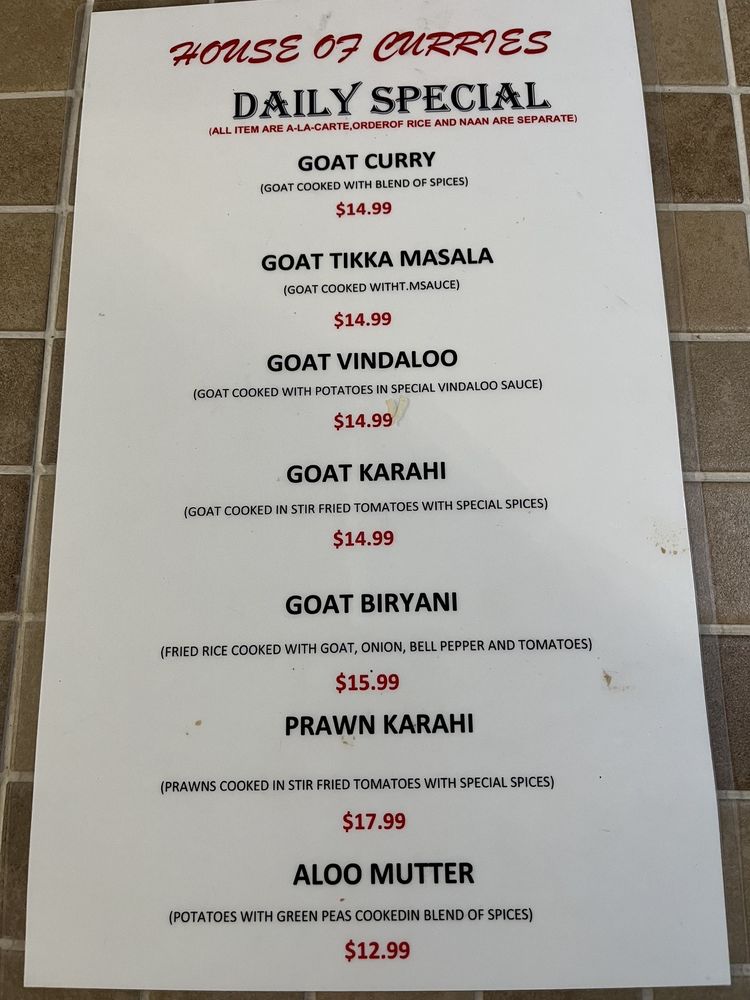 HOUSE OF CURRIES
DAILY SPECIAL
(ALL ITEM ARE A-LA-CARTE,ORDEROF RICE AND NAAN ARE SEPARATE)
GOAT CURRY
(GOAT COOKED WITH BLEND OF SPICES)
$14.99
GOAT TIKKA MASALA
(GOAT COOKED WITHT.MSAUCE)
$14.99
GOAT VINDALOO
(GOAT COOKED WITH POTATOES IN SPECIAL VINDALOO SAUCE)
$14.99
GOAT KARAHI
(GOAT COOKED IN STIR FRIED TOMATOES WITH SPECIAL SPICES)
$14.99
GOAT BIRYANI
(FRIED RICE COOKED WITH GOAT, ONION, BELL PEPPER AND TOMATOES)
$15.99
PRAWN KARAHI
(PRAWNS COOKED IN STIR FRIED TOMATOES WITH SPECIAL SPICES)
$17.99
ALOO MUTTER
(POTATOES WITH GREEN PEAS COOKEDIN BLEND OF SPICES)
$12.99